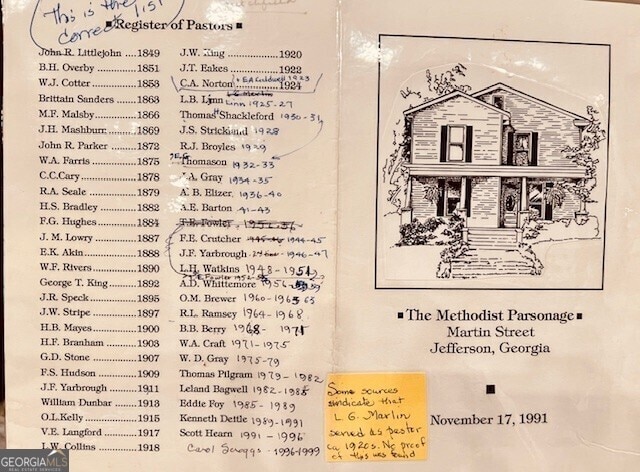 This is the correct list
■Register of Pastors■
John R. Littlejohn ....1849
B.H. Overby ....1851
W.J. Cotter ....1853
Brittain Sanders ....1863
M.F. Malsby ....1866
J.H. Mashburn ....1869
John R. Parker ....1872
W.A. Farris ....1875
C.C.Cary ....1878
R.A. Seale ....1879
H.S. Bradley ....1882
F.G. Hughes ....1884
J. M. Lowry ....1887
E.K. Akin ....1888
W.F. Rivers ....1890
George T. King ....1892
J.R. Speck ....1895
J.W. Stripe ....1897
H.B. Mayes ....1900
H.F. Branham ....1903
G.D. Stone ....1907
F.S. Hudson ....1909
J.F. Yarbrough ....1911
William Dunbar ....1913
O.L.Kelly ....1915
V.E. Langford ....1917
L.W. Collins ....1918
J.W. King ....1920
J.T. Eakes ....1922
+ EA Caldwell 1923
C.A. Norton ....1924
L.G. Marlin
L.B. Linn Linn 1925-27
Thomas Shackleford 1930-31
J.S. Strickland 1928
R.J. Broyles 1929
Thomason 1932-33
J.A. Gray 1934-35
A. B. Elizer, 1936-40
A.E. Barton 41-43
T.E. Fowler, 1952-56
F.E. Crutcher 1944-45
J.F. Yarbrough 1946-47
L.H. Watkins 1948-1952
TE Fowler 1952-56
A.D. Whittemore 1956-59
O.M. Brewer 1960-1963 63
R.L. Ramsey 1964-1968
B.B. Berry 1968- 1971
W.A. Craft 1971-1975
W. D. Gray 1975-79
Thomas Pilgram 1979-1982
Leland Bagwell 1982-1985
Eddie Foy 1985-1989
Kenneth Dettle 1989-1991
Scott Hearn 1991-1996
Carol Scroggs -1996-1999
■The Methodist Parsonage■
Martin Street
Jefferson, Georgia
November 17, 1991
Some sources
indicate that
L. G. Marlin
served as pastor
ca 1920s. No proof
of this was found
GEORGIAMLS
REAL ESTATE SERVICES